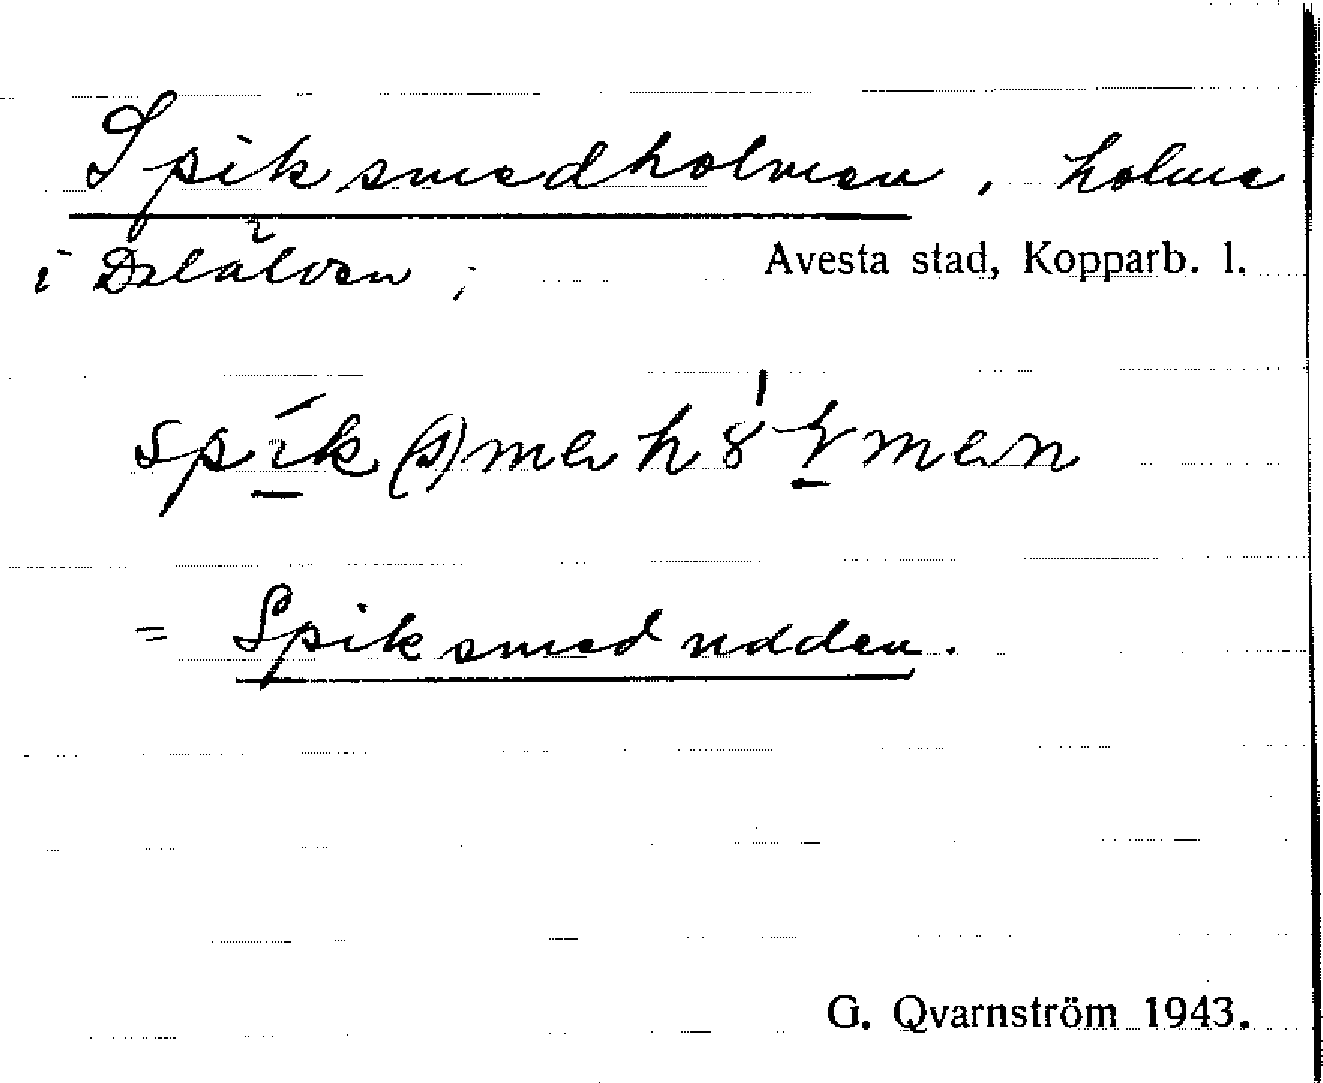 Spiksmedholmen, holme
i Dalälven;
Avesta stad, Kopparb. l.
= Spiksmedudden.
G. Qvarnström 1943.